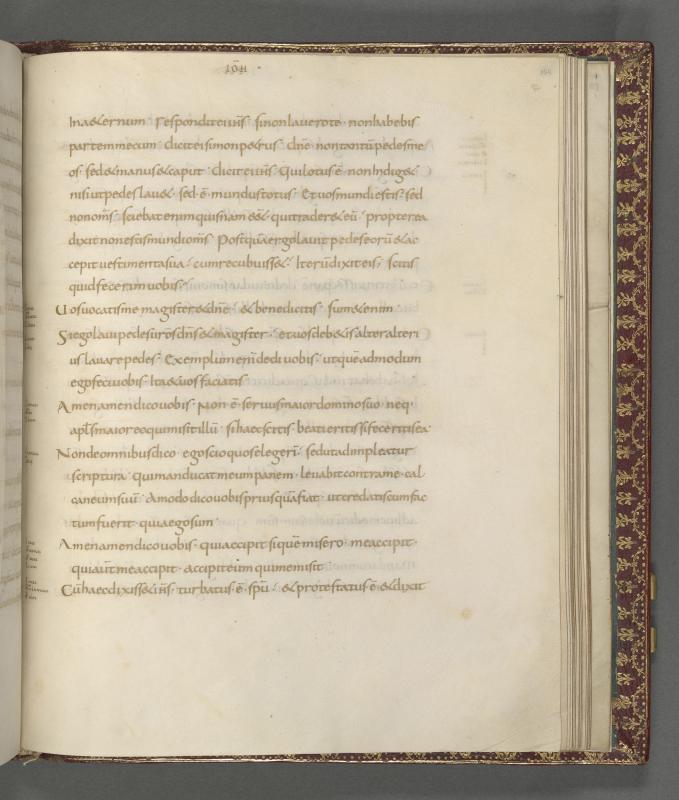 IOH
In aeternum respondit ei ihs si non lavero te non habebis
partem mecum dicit ei simon petrus dne non tantū pedes me
os sed et manus et caput dicit ei ihs Qui lotus ē non indiget
nisi ut pedes lavet sed ē mundus totus Et vos mundi estis sed
non oms sciebat enim quisnam esset qui traderet eū propterea
dixit non estis mundi oms Postquā ergo lavit pedes eorū et ac
cepit vestimenta sua cum recubuisset Iterū dixit eis scitis
quid fecerim vobis
Vos vocatis me magister et dne et bene dicitis sum etenim
Si ego lavi pedes vros dns et magister et vos debetis alter alteri
us lavare pedes Exemplum eni dedi vobis ut quemadmodum
ego feci vobis Ita et vos faciatis
Amen amen dico vobis Non ē servus maior domino suo neq
apls maior eo qui misit illū si haec scitis beati eritis si feceritis ea
Non de omnibus dico ego scio quos elegeri sed ut adimpleatur
scriptura qui manducat mecum panem levabit contra me cal
caneum suū Amodo dico vobis priusquā fiat ut credatis cum fac
tum fuerit quia ego sum
Amen amen dico vobis qui accipit si quē misero me accipit
qui aut me accipit accipit eum qui me misit
Cū haec dixisset ihs turbatus ē spu et protestatus ē et dixit